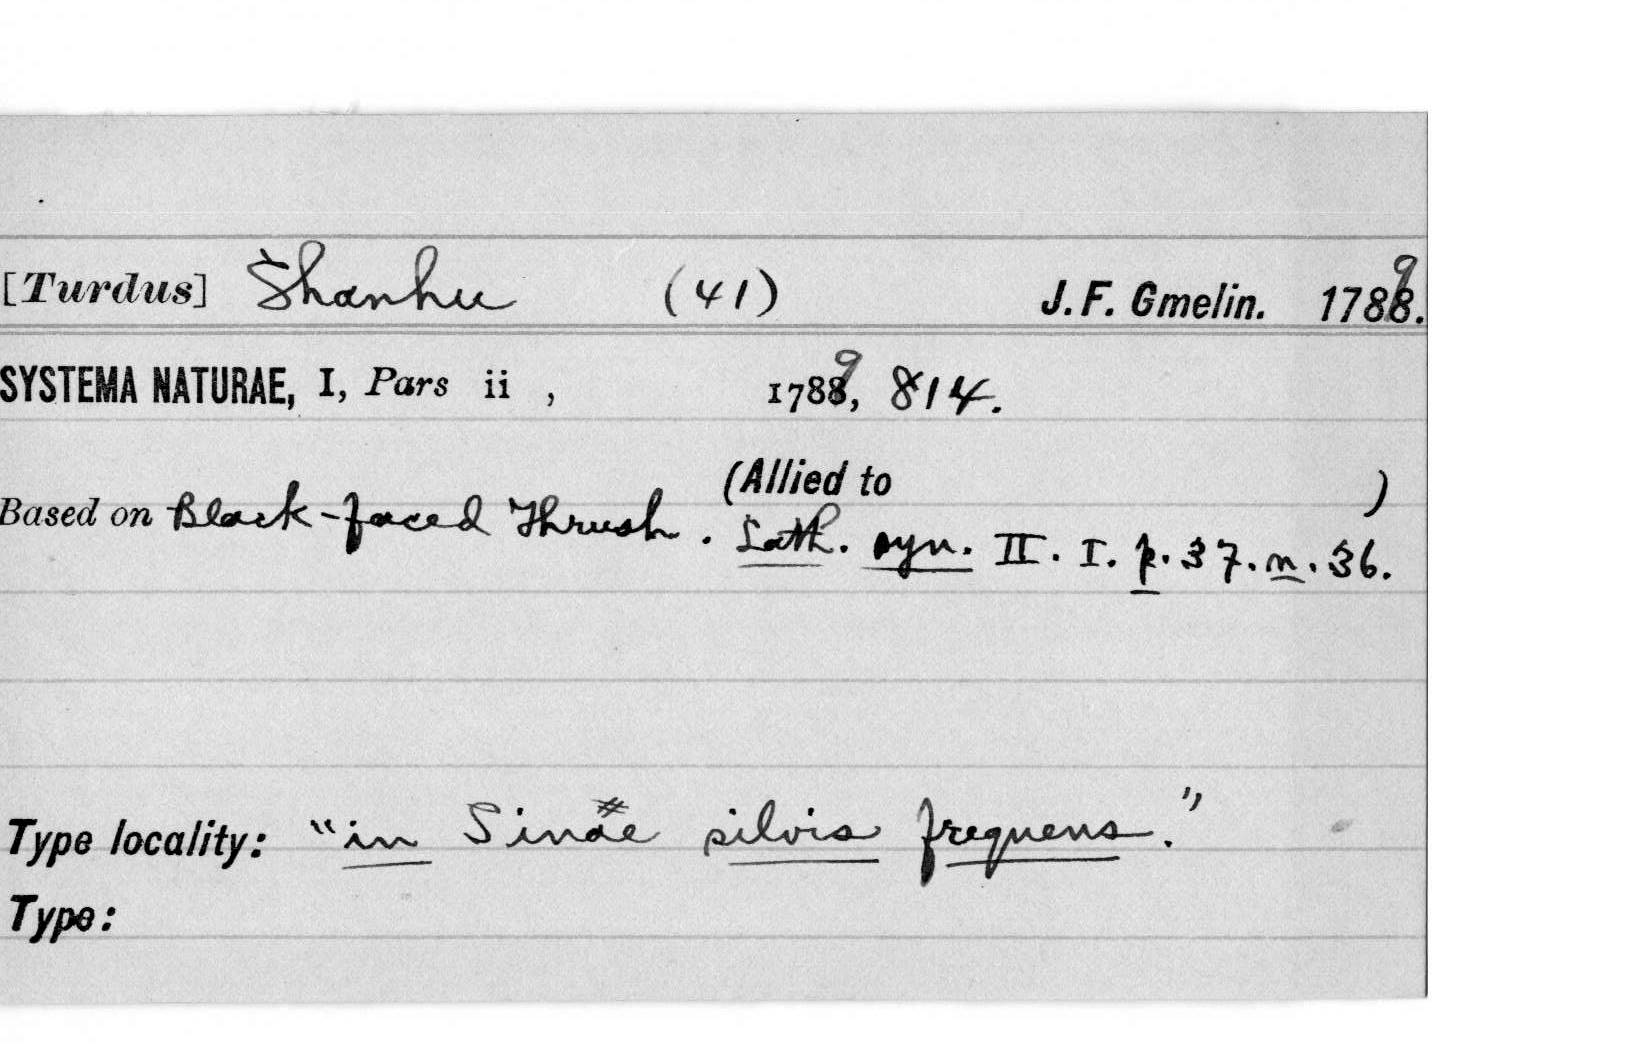 [Turdus] Shanhu (41) J. F. Gmelin. 1789.
SYSTEMA NATURAE, I, Pars ii , 1789, 814.
(Allied to )
Based on Black-faced Thrush. Lath. syn. II. I. p. 37. n. 36.
Type locality: "in Sinae silvis frequens."
Type: